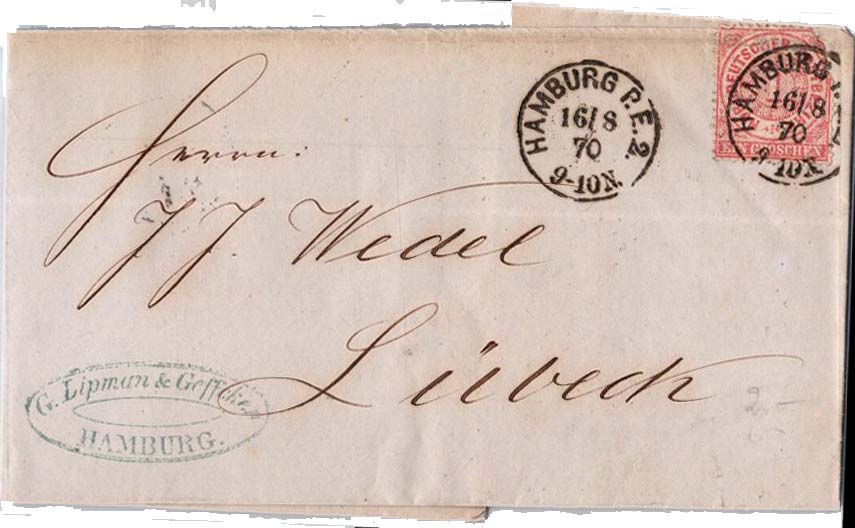 HAMBURG P.E.2.
16/8
70
9-10N.
HAMBURG P.E.2
16/8
70
9-10N.
EIN GROSCHEN
Herrn:
J. J. Wedel
Lübeck
G. Lipman & Geffcken
HAMBURG.